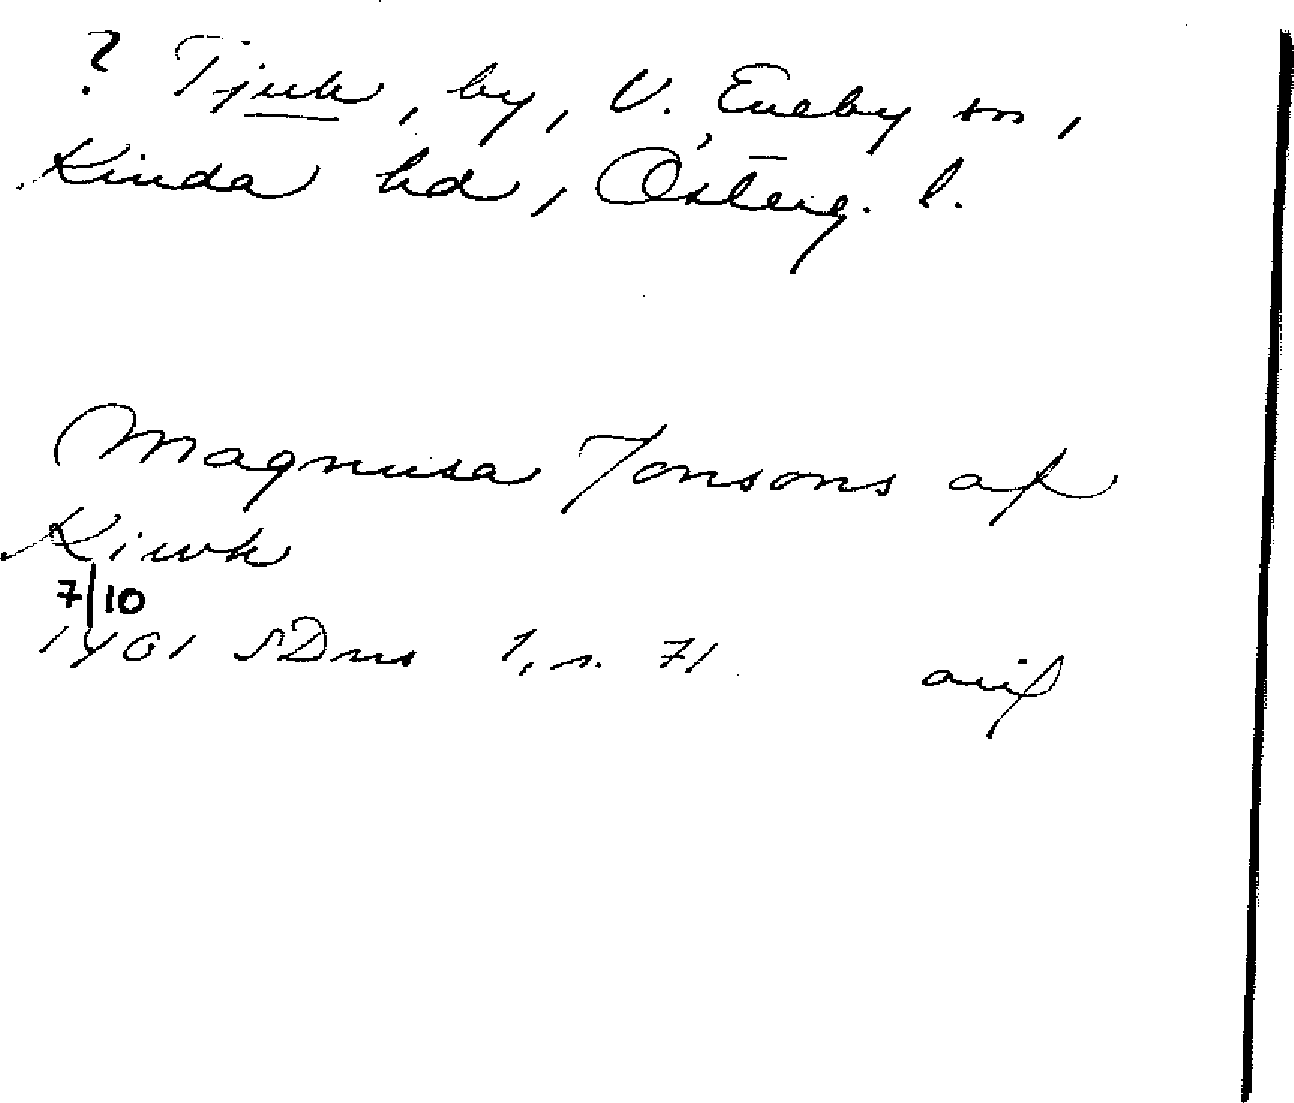 ? Tjuk, by, V. Eneby sn,
Kinda hd, Österg. l.
Magnusa Jonsons af
Kiwk
7/10
1401 SDns 1, s. 71
avs